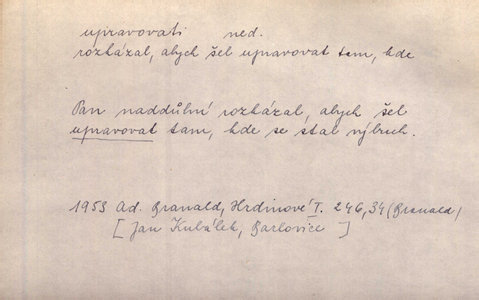 upravovati ned.
rozkázal, abych šel upravovat tam, kde
Pan naddůlní rozkázal, abych šel
upravovat tam, kde se stal výbuch.
1953 Ad. Branald, Hrdinové I. 246,34 (Branald)
[Jan Kubálek, Barlovice]